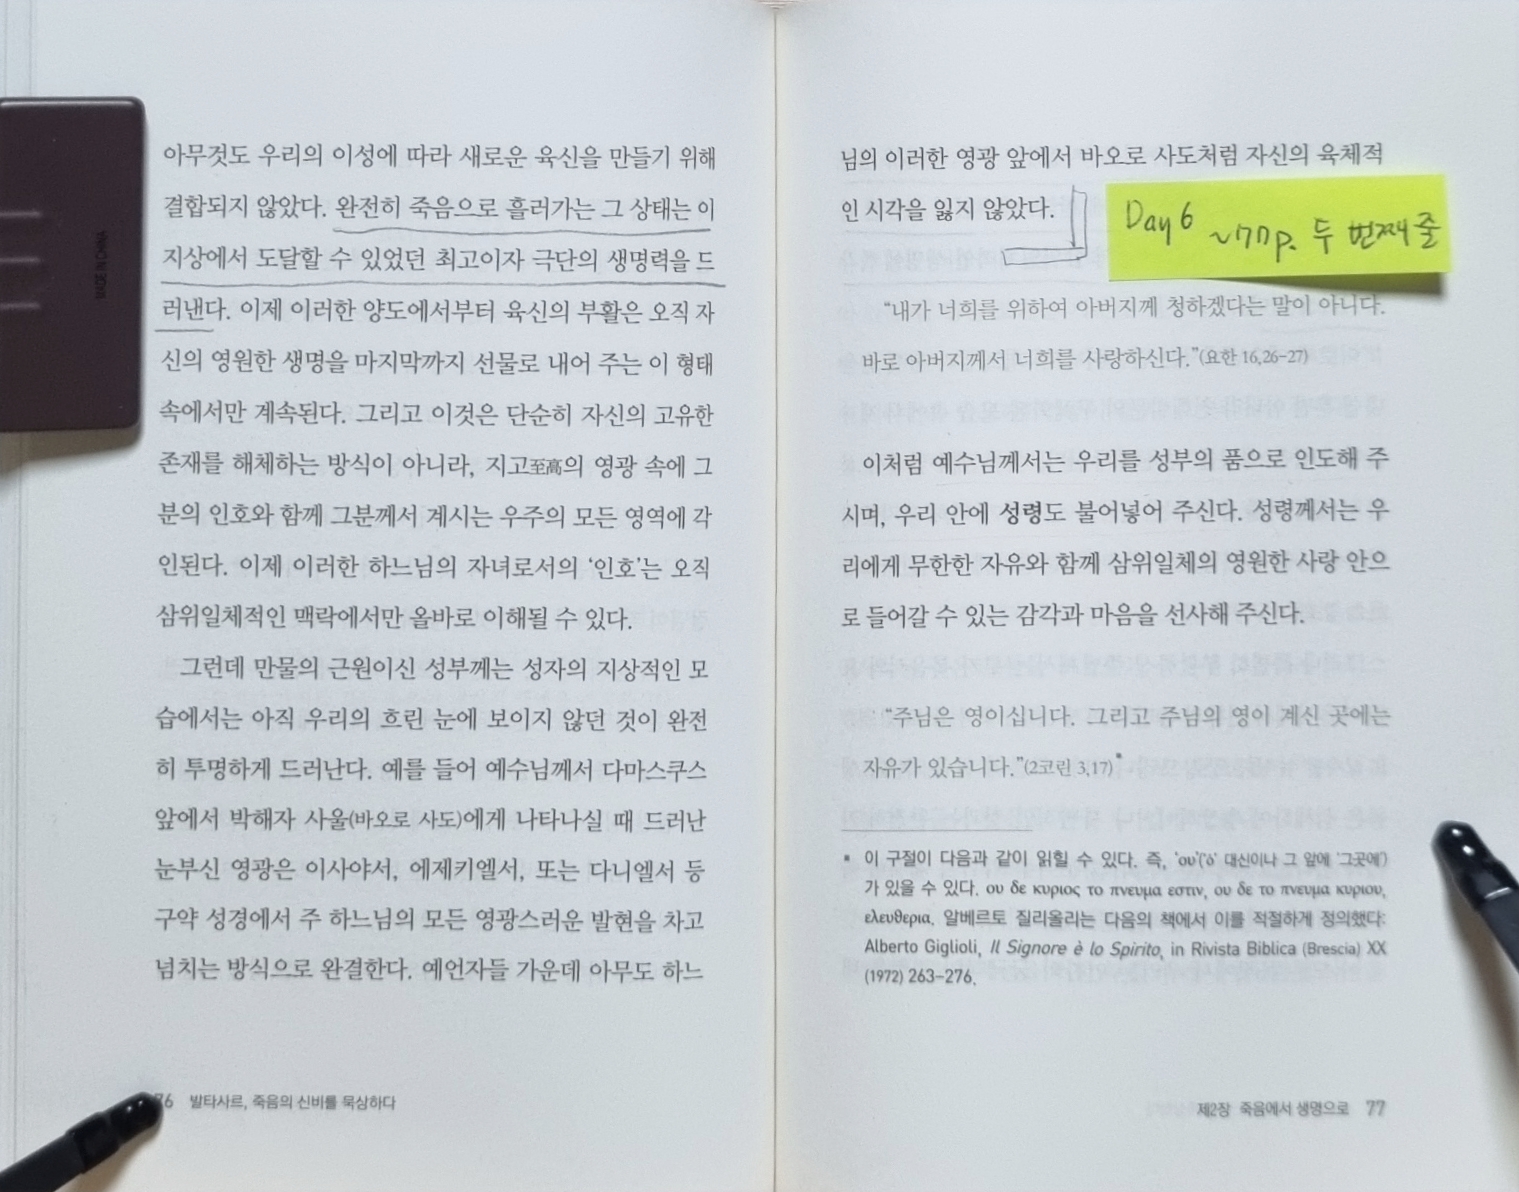 아무것도 우리의 이성에 따라 새로운 육신을 만들기 위해
결합되지 않았다. 완전히 죽음으로 흘러가는 그 상태는 이
지상에서 도달할 수 있었던 최고이자 극단의 생명력을 드
러낸다. 이제 이러한 양도에서부터 육신의 부활은 오직 자
신의 영원한 생명을 마지막까지 선물로 내어 주는 이 형태
속에서만 계속된다. 그리고 이것은 단순히 자신의 고유한
존재를 해체하는 방식이 아니라, 지고至高의 영광 속에 그
분의 인호와 함께 그분께서 계시는 우주의 모든 영역에 각
인된다. 이제 이러한 하느님의 자녀로서의 ‘인호’는 오직
삼위일체적인 맥락에서만 올바로 이해될 수 있다.
그런데 만물의 근원이신 성부께는 성자의 지상적인 모
습에서는 아직 우리의 흐린 눈에 보이지 않던 것이 완전
히 투명하게 드러난다. 예를 들어 예수님께서 다마스쿠스
앞에서 박해자 사울(바오로 사도)에게 나타나실 때 드러난
눈부신 영광은 이사야서, 에제키엘서, 또는 다니엘서 등
구약 성경에서 주 하느님의 모든 영광스러운 발현을 차고
넘치는 방식으로 완결한다. 예언자들 가운데 아무도 하느
76 발타사르, 죽음의 신비를 묵상하다
님의 이러한 영광 앞에서 바오로 사도처럼 자신의 육체적
인 시각을 잃지 않았다.
Day 6 ~77p. 두 번째 줄
“내가 너희를 위하여 아버지께 청하겠다는 말이 아니다.
바로 아버지께서 너희를 사랑하신다.”(요한 16,26-27)
이처럼 예수님께서는 우리를 성부의 품으로 인도해 주
시며, 우리 안에 성령도 불어넣어 주신다. 성령께서는 우
리에게 무한한 자유와 함께 삼위일체의 영원한 사랑 안으
로 들어갈 수 있는 감각과 마음을 선사해 주신다.
“주님은 영이십니다. 그리고 주님의 영이 계신 곳에는
자유가 있습니다.”(2코린 3,17)*
* 이 구절이 다음과 같이 읽힐 수 있다. 즉, ‘ου’(‘ό’ 대신이나 그 앞에 ‘그곳에’)
가 있을 수 있다. ου δε κυριος το πνευμα εστιν, ου δε το πνευμα κυριου,
ελευθερια. 알베르토 질리올리는 다음의 책에서 이를 적절하게 정의했다:
Alberto Giglioli, Il Signore è lo Spirito, in Rivista Biblica (Brescia) XX
(1972) 263-276.
제2장 죽음에서 생명으로 77